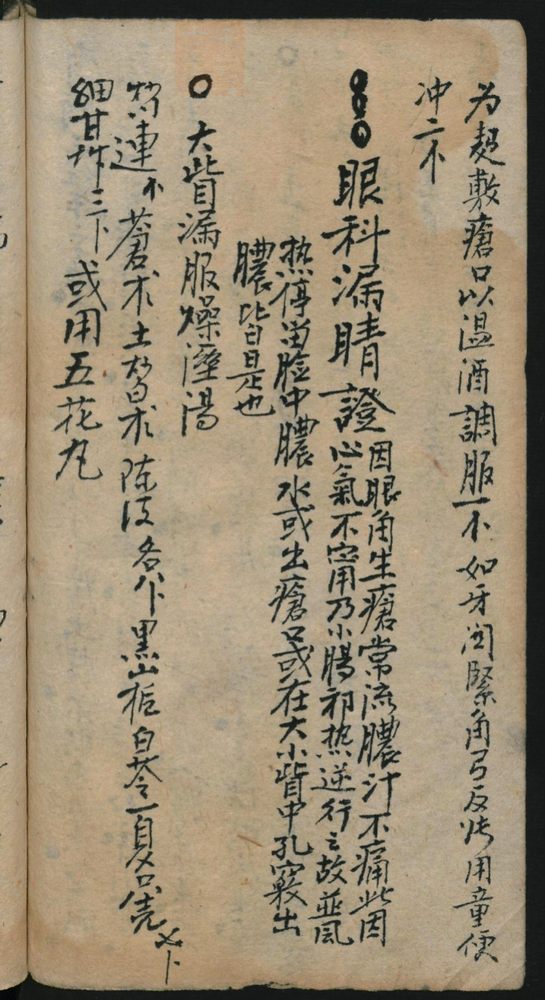 为麩敷瘡口以温酒調服一不如牙関緊角弓反张用童便
冲二不
眼科漏睛證
因眼角生瘡常流膿汁不痛此因
心氣不甯乃小腸邪热逆行之故並風
热停畄脸中膿水或出瘡口或在大小眥中孔竅出
膿皆是也
大眥漏服燥溼湯
連不蒼朮土朮陈皮各卜黑山栀白苓一夏只壳卜
細甘卜三卜或用五花丸